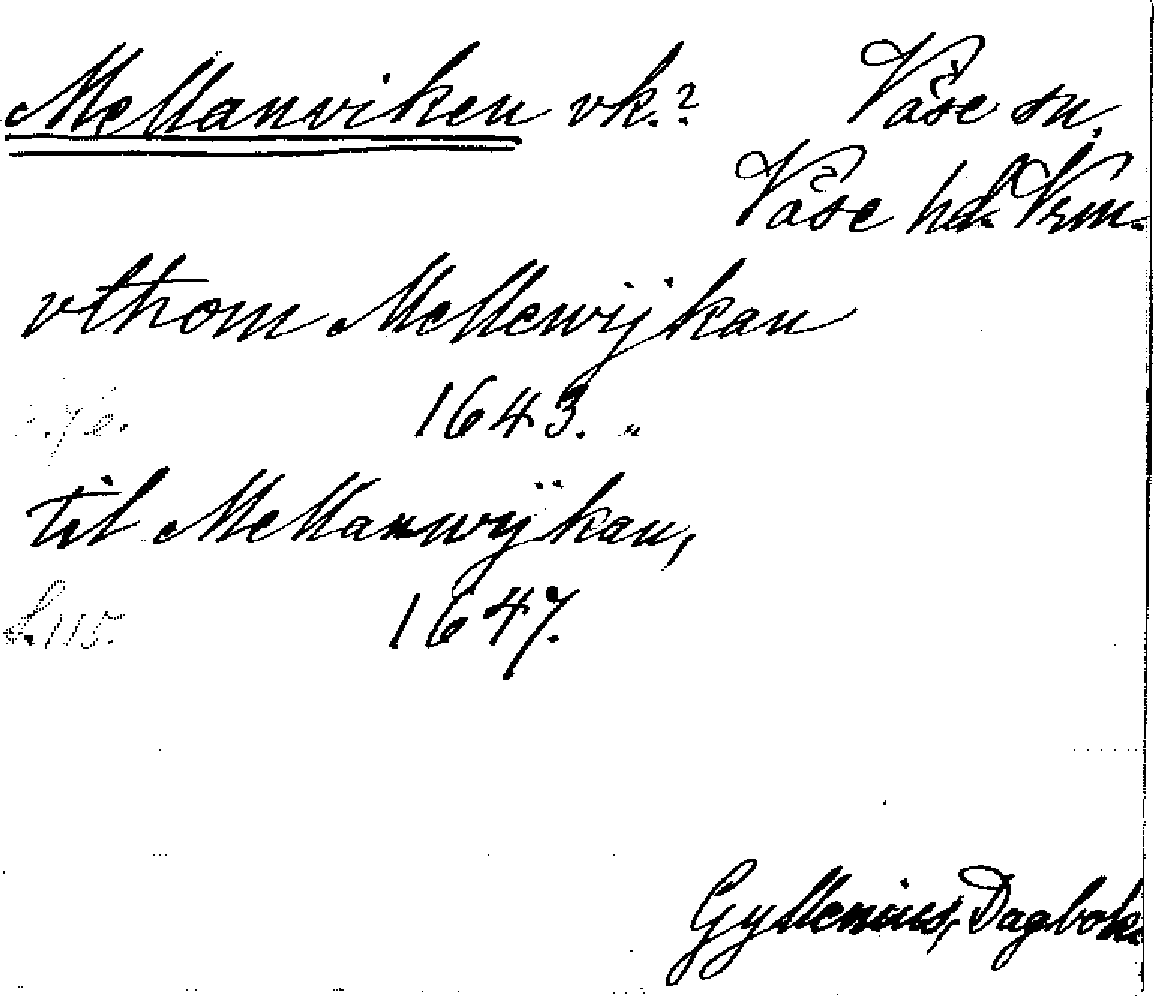 Mellanviken vk.? Väse sn.
Väse hd. Vrm.
vthom Mellewijkan
1643. „
til Mellanwÿkan,
S. 115. 1647.
Gyllenius, Dagbok.